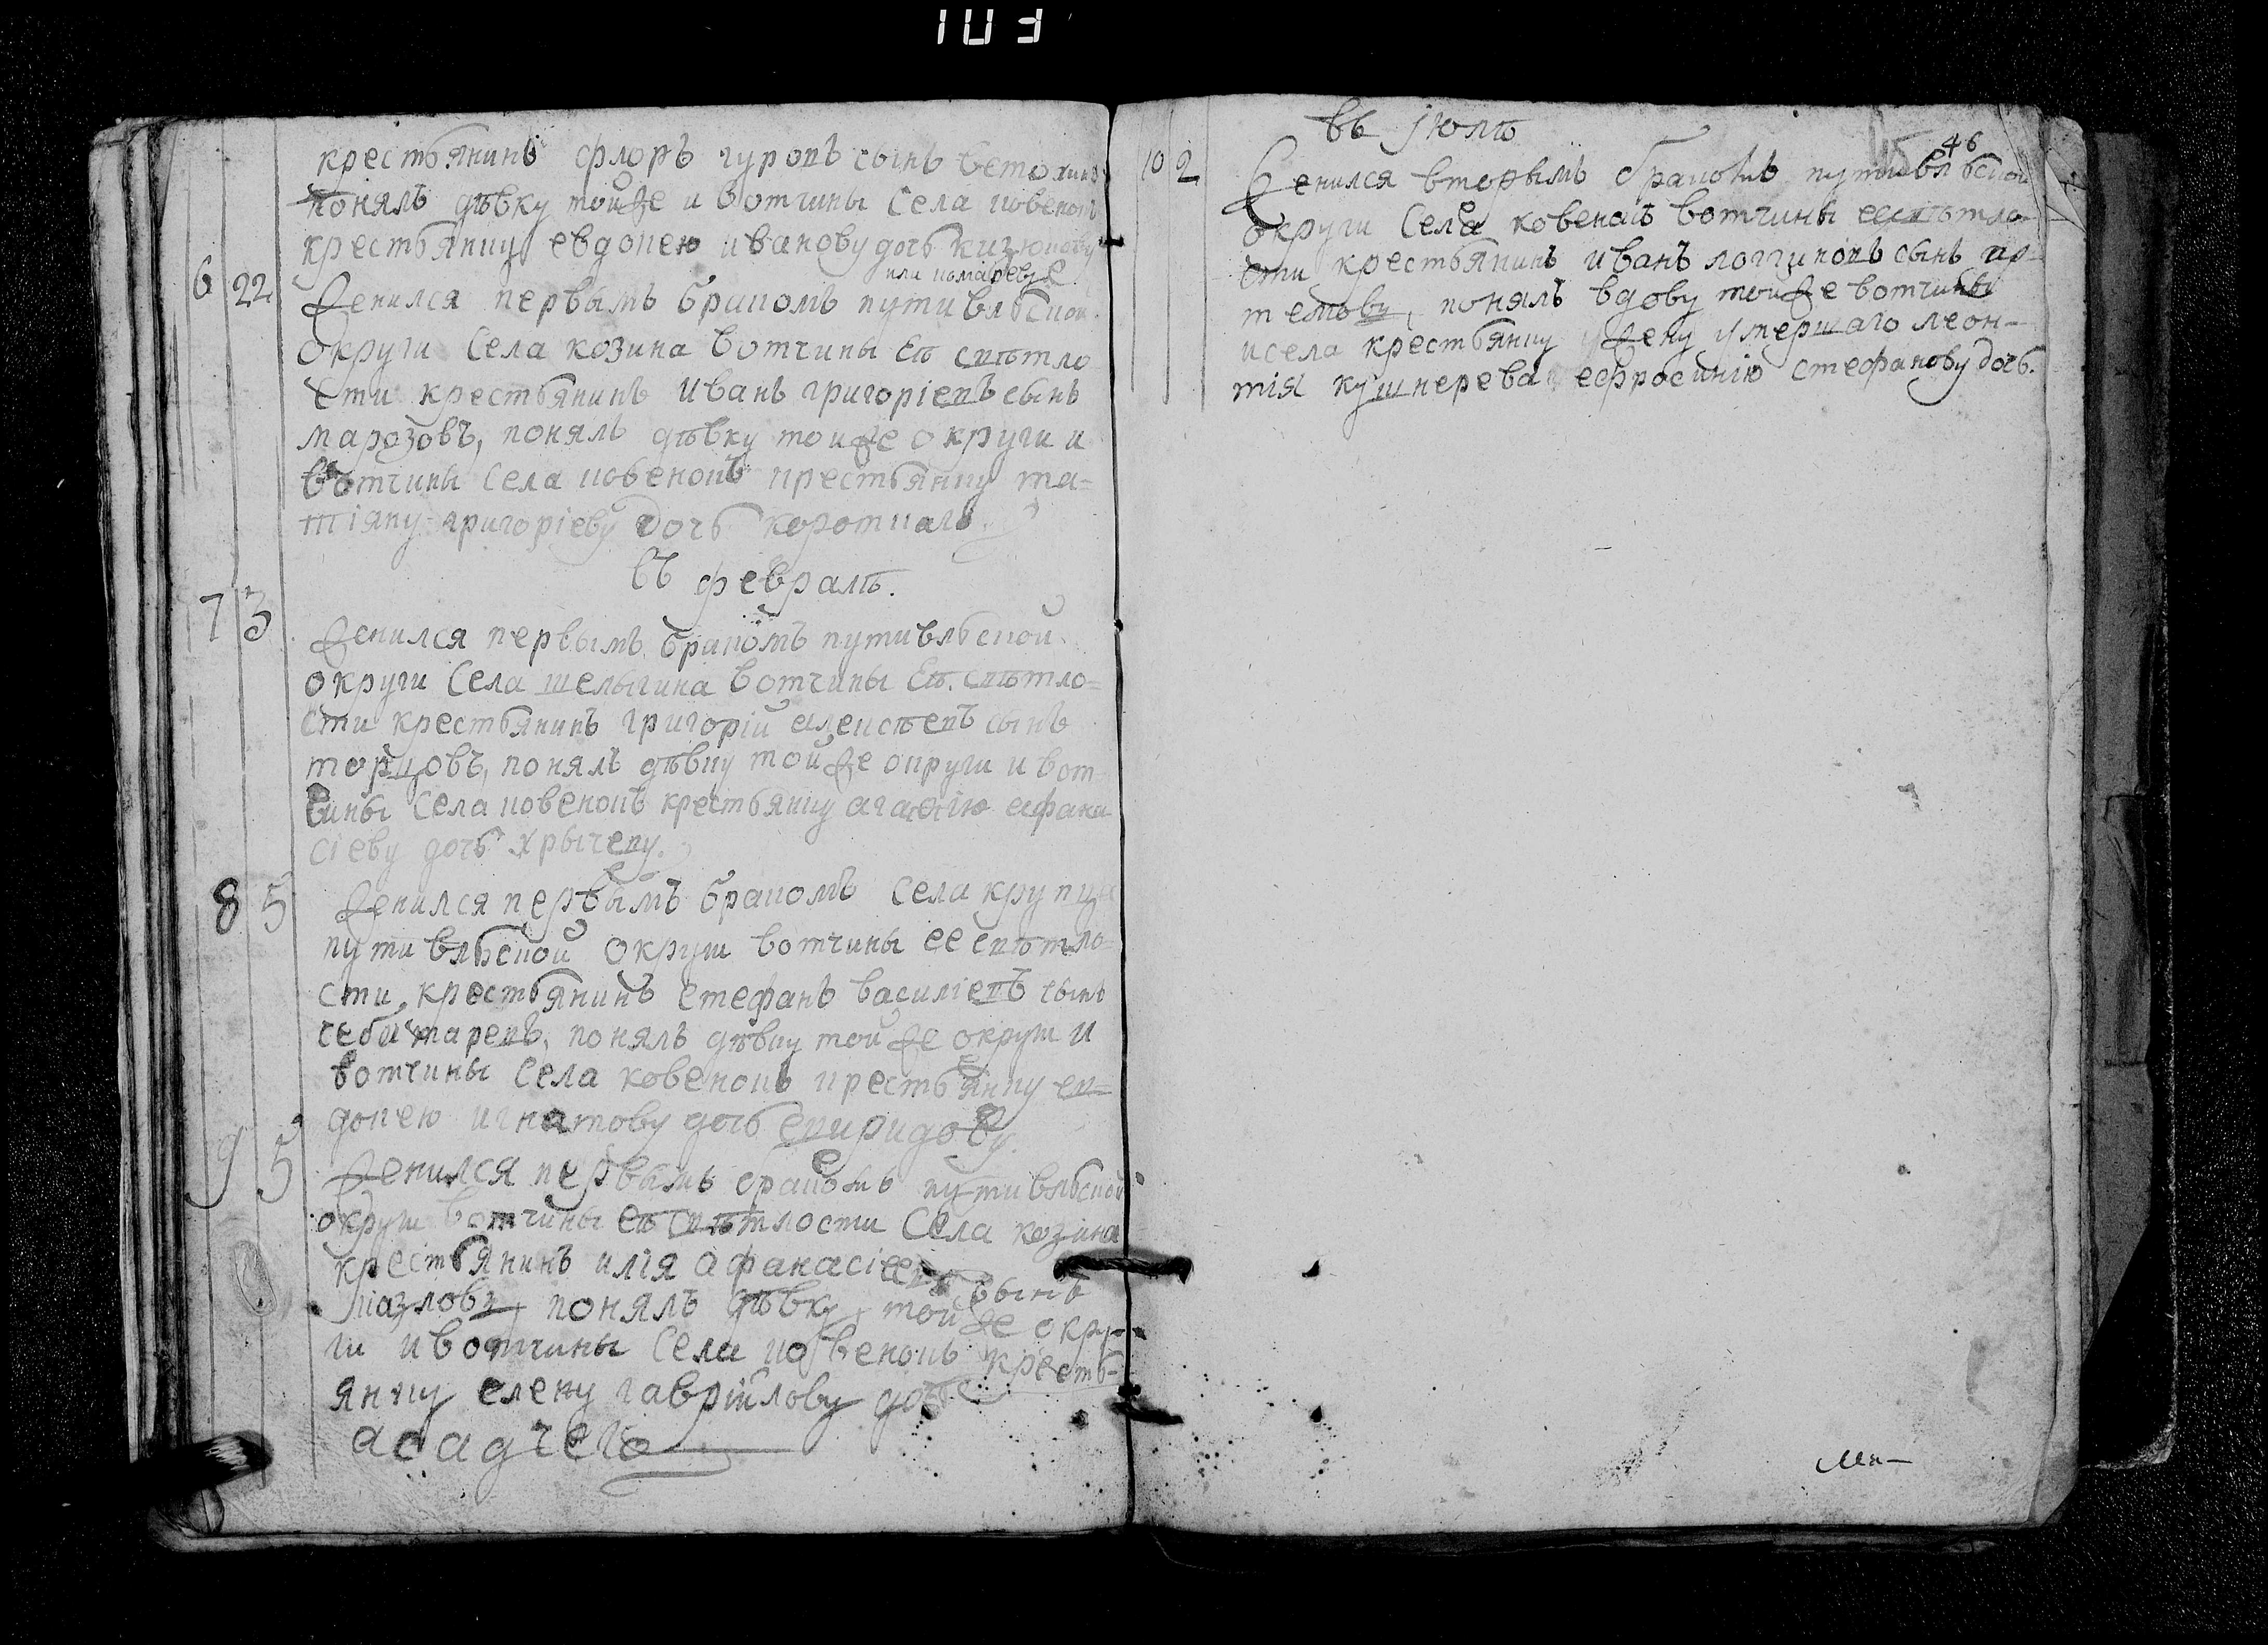 103
крестьянинъ флоръ гуровъ сынъ ветохинъ
понялъ дѣвку тойже и вотчины села ковенокъ
крестьянку евдокею иванову дочь
6 22 женился первымъ бракомъ путивльской
округи села козина вотчины ея свѣтло
сти крестьянинъ иванъ григоріевъ сынъ
марозовъ, понялъ дѣвку тойже округи и
вотчины села ковенокъ крестьянку та=
тіяну григоріеву дочь короткаго.
въ февралѣ.
7 3 женился первымъ бракомъ путивльской
округи села шелыгина вотчины ея свѣтло=
сти крестьянинъ григорій алексѣевъ сынъ
торцовъ, понялъ дѣвку тойже округи и вот
чины села ковенокъ крестьянку агаѳію афана
сіеву дочь хрычеву.
8 5 женился первымъ бракомъ села крупца
путивльской округи вотчины ее свѣтло=
сти крестьянинъ стефанъ василіевъ сынъ
понялъ дѣвку тойже округи и
вотчины села ковенокъ крестьянку ев=
докею игнатову дочь спиридову.
9 5 женился первымъ бракомъ путивльской
округи вотчины ея свѣтлости села козина
крестьянинъ илія афанасіевъ сынъ
понялъ дѣвку тойже окру-
ги и вотчины села ковенокъ кресть-
янку елену гавріилову дочь
асадчего
въ іюлѣ
46
10 2 Женился вторымъ бракомъ путивльской
округи села ковенокъ вотчины ее свѣтло
сти крестьянинъ иванъ логгиновъ сынъ ар=
темовъ, понялъ вдову тойже вотчины
и села крестьянку жену умершаго леон-
тія кушнерева ефросинію стефанову дочь.